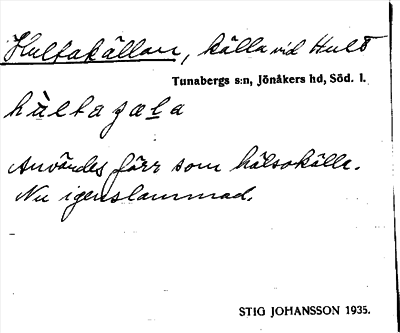 Hultakällan, källa vid Hult
Tunabergs s:n, Jönåkers hd, Söd. l.
Användes förr som hälsokälla.
Nu igenslammad.
STIG JOHANSSON 1935.